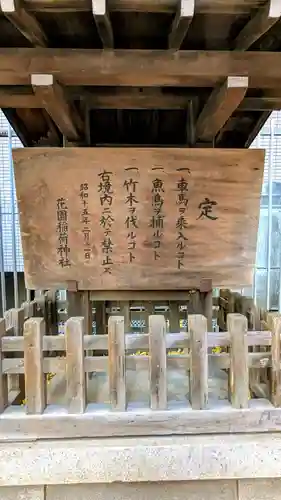 定
一、車馬ヲ乗入ルコト
二、魚鳥ヲ捕ルコト
一、竹木ヲ伐ルコト
右境内ニ於テ禁止ス
昭和十五年二月二一日
花園稲荷神社